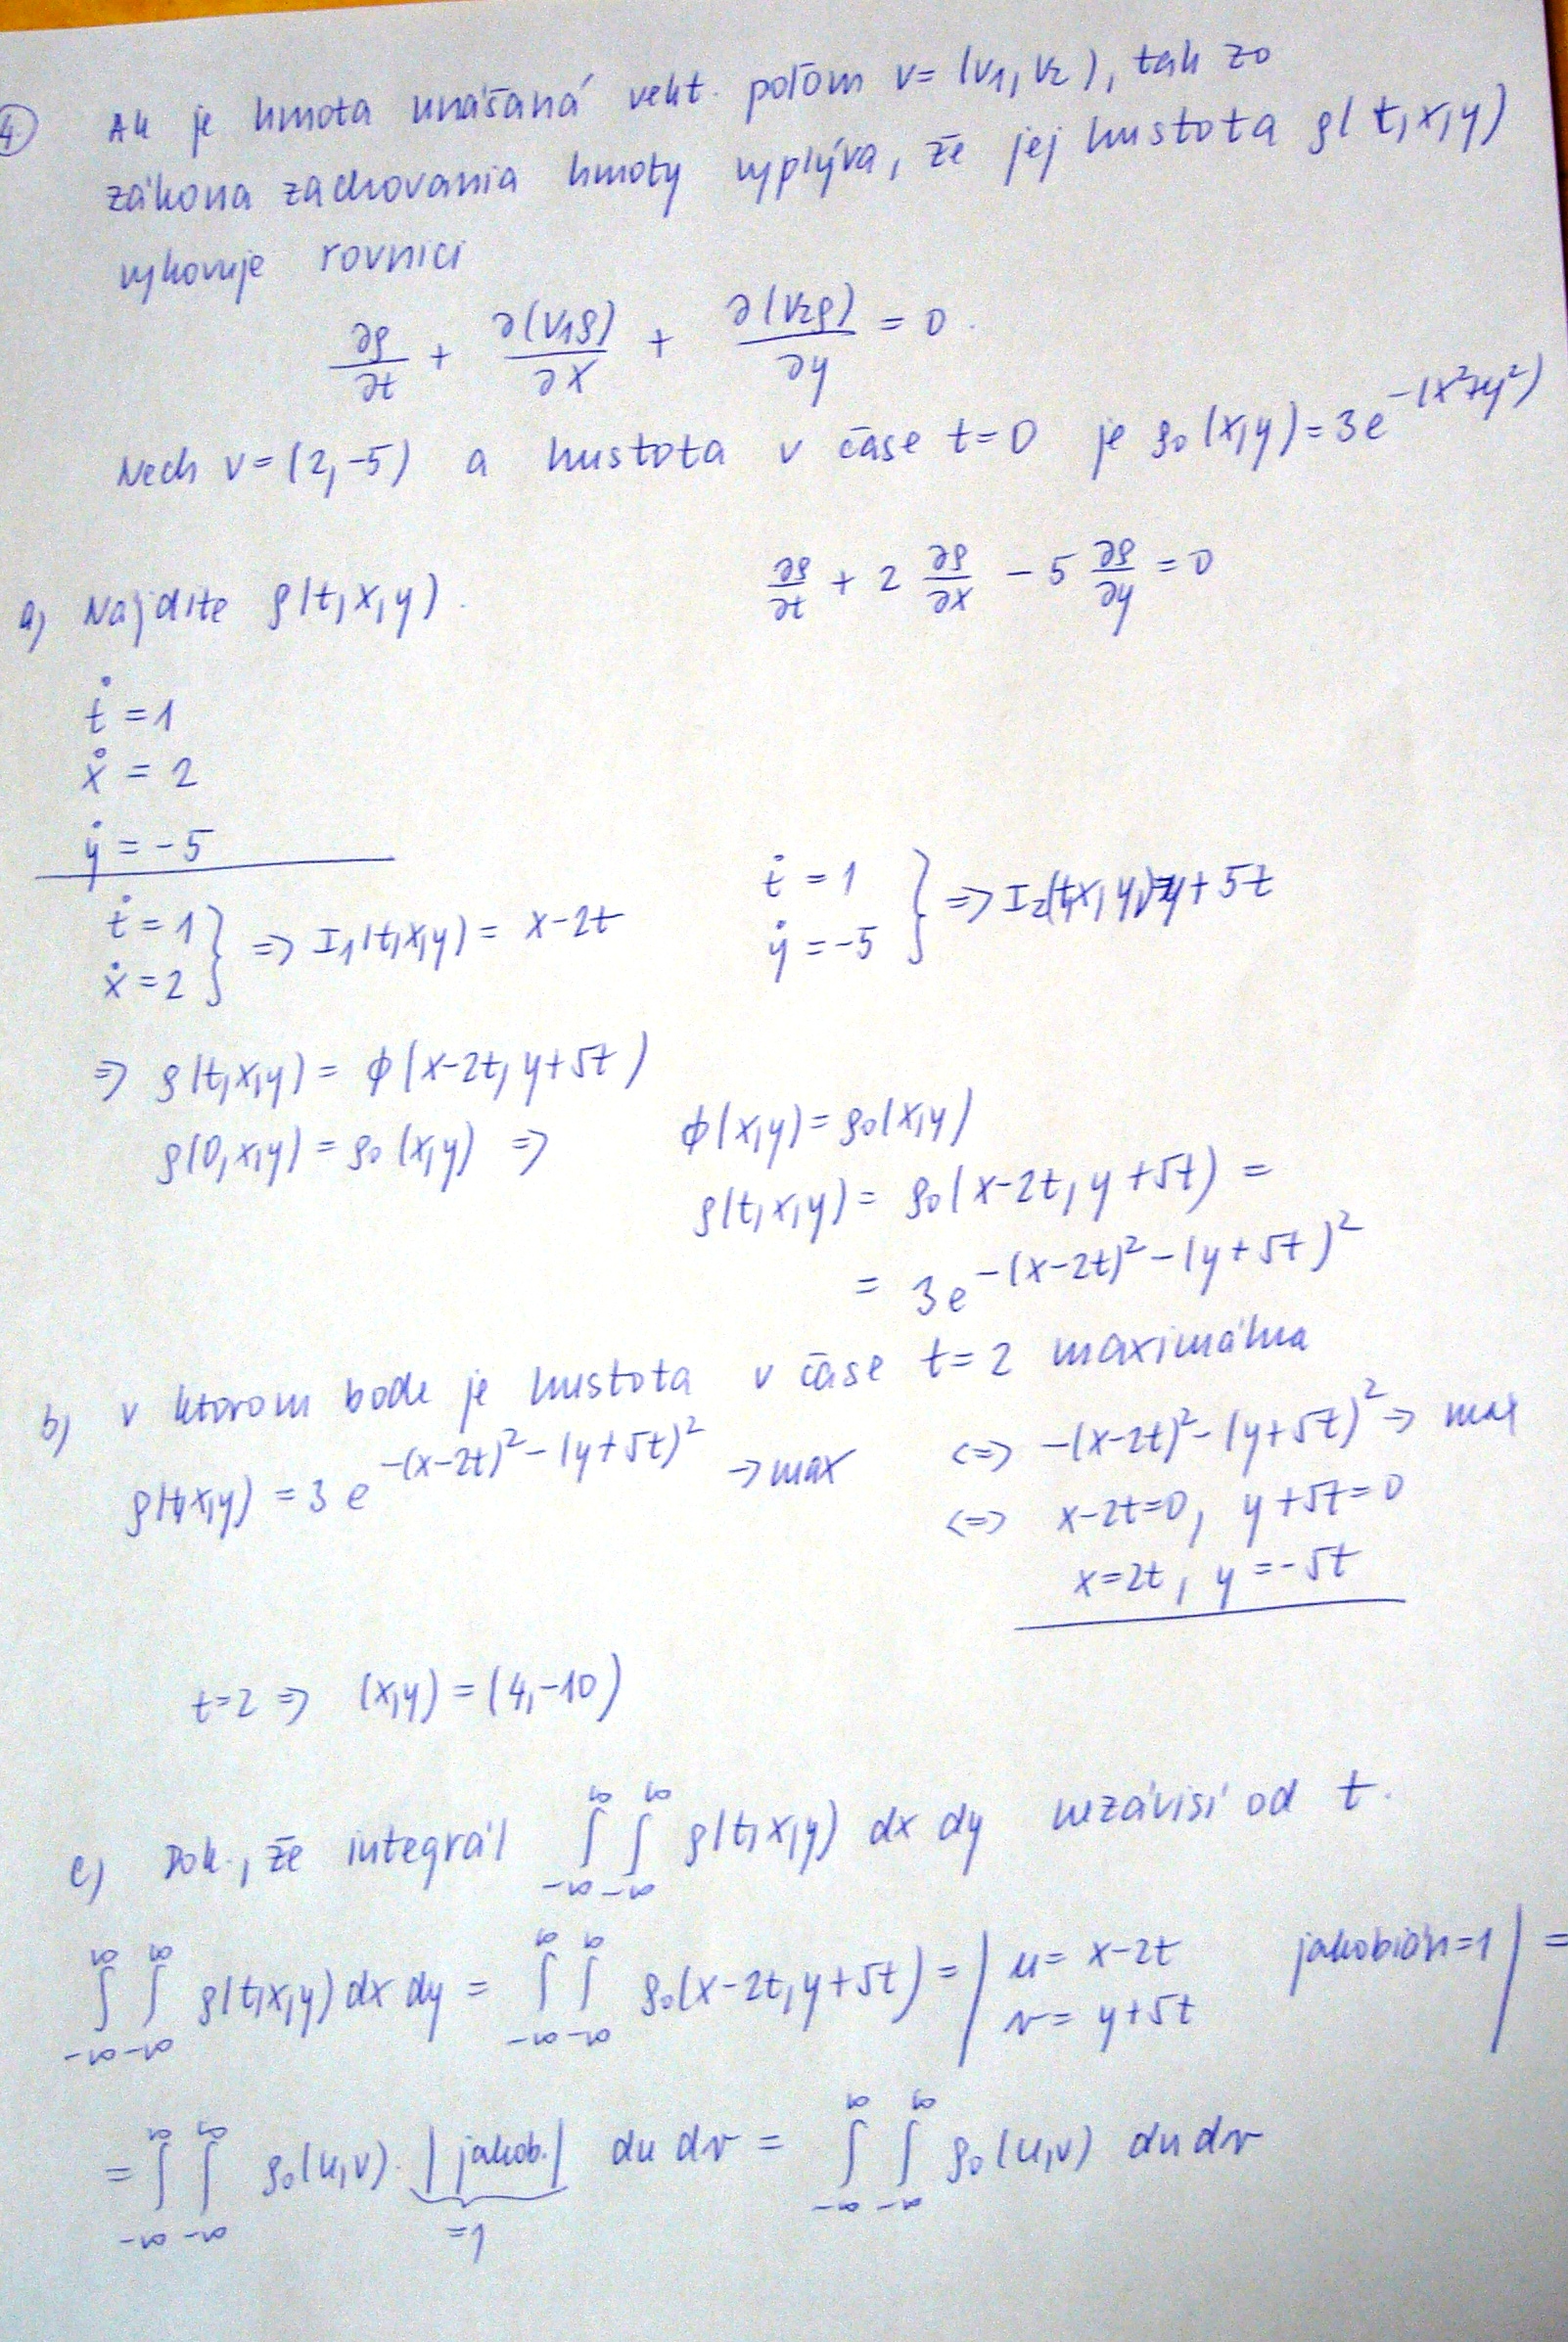 4. Ak je hmota unášaná vekt. poľom v = (v₁, v₂), tak zo
zákona zachovania hmoty vyplýva, že jej hustota ρ(t,x,y)
vyhovuje rovnici
∂ρ/∂t + ∂(v₁ρ)/∂x + ∂(v₂ρ)/∂y = 0.
Nech v = (2,-5) a hustota v čase t=0 je ρ₀(x,y) = 3e^{-(x²+y²)}
a) Nájdite ρ(t,x,y). ∂ρ/∂t + 2 ∂ρ/∂x - 5 ∂ρ/∂y = 0
ṫ = 1
ẋ = 2
ẏ = -5
ṫ = 1
ẋ = 2 } => I₁(t,x,y) = x-2t
ṫ = 1
ẏ = -5 } => I₂(t,x,y) = y+5t
=> ρ(t,x,y) = φ(x-2t, y+5t)
ρ(0,x,y) = ρ₀(x,y) => φ(x,y) = ρ₀(x,y)
ρ(t,x,y) = ρ₀(x-2t, y+5t) =
= 3e^{-(x-2t)²-(y+5t)²}
b) v ktorom bode je hustota v čase t=2 maximálna
ρ(t,x,y) = 3e^{-(x-2t)²-(y+5t)²} → max <=> -(x-2t)²-(y+5t)² → max
<=> x-2t=0, y+5t=0
x=2t, y=-5t
t=2 => (x,y) = (4,-10)
c) Dok., že integrál ∫_{-∞}^{∞} ∫_{-∞}^{∞} ρ(t,x,y) dx dy nezávisí od t.
∫_{-∞}^{∞} ∫_{-∞}^{∞} ρ(t,x,y) dx dy = ∫_{-∞}^{∞} ∫_{-∞}^{∞} ρ₀(x-2t, y+5t) = | u = x-2t jakobián=1 | =
v = y+5t
= ∫_{-∞}^{∞} ∫_{-∞}^{∞} ρ₀(u,v) · |jakob.| du dv = ∫_{-∞}^{∞} ∫_{-∞}^{∞} ρ₀(u,v) du dv
=1